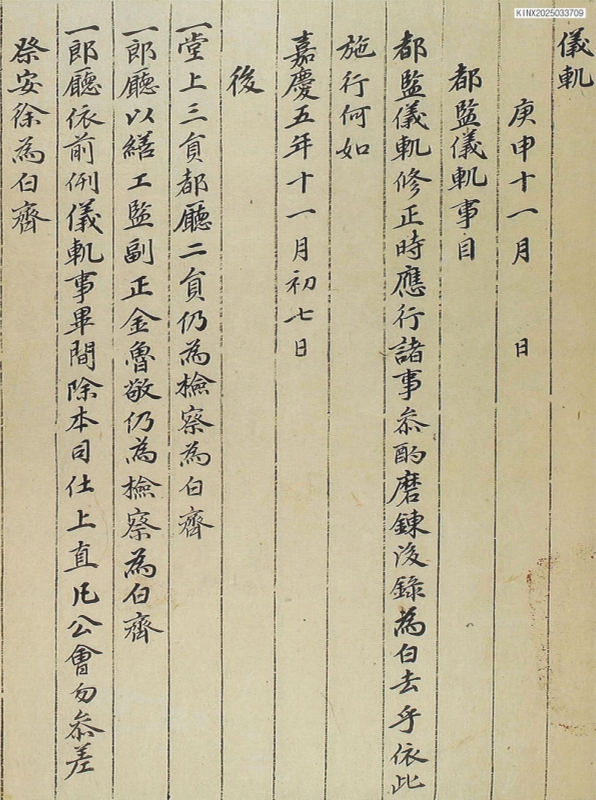 KINX2025033709
儀軌
庚申十一月　日
都監儀軌事目
都監儀軌修正時應行諸事叅酌磨鍊後錄為白去乎依此
施行何如
嘉慶五年十一月初七日
後
一堂上三負都廳二負仍為檢察為白齊
一郎廳以繕工監副正金魯敬仍為檢察為白齊
一郎廳依前例儀軌事畢間除本司仕上直凡公會勿叅差
祭安徐為白齊